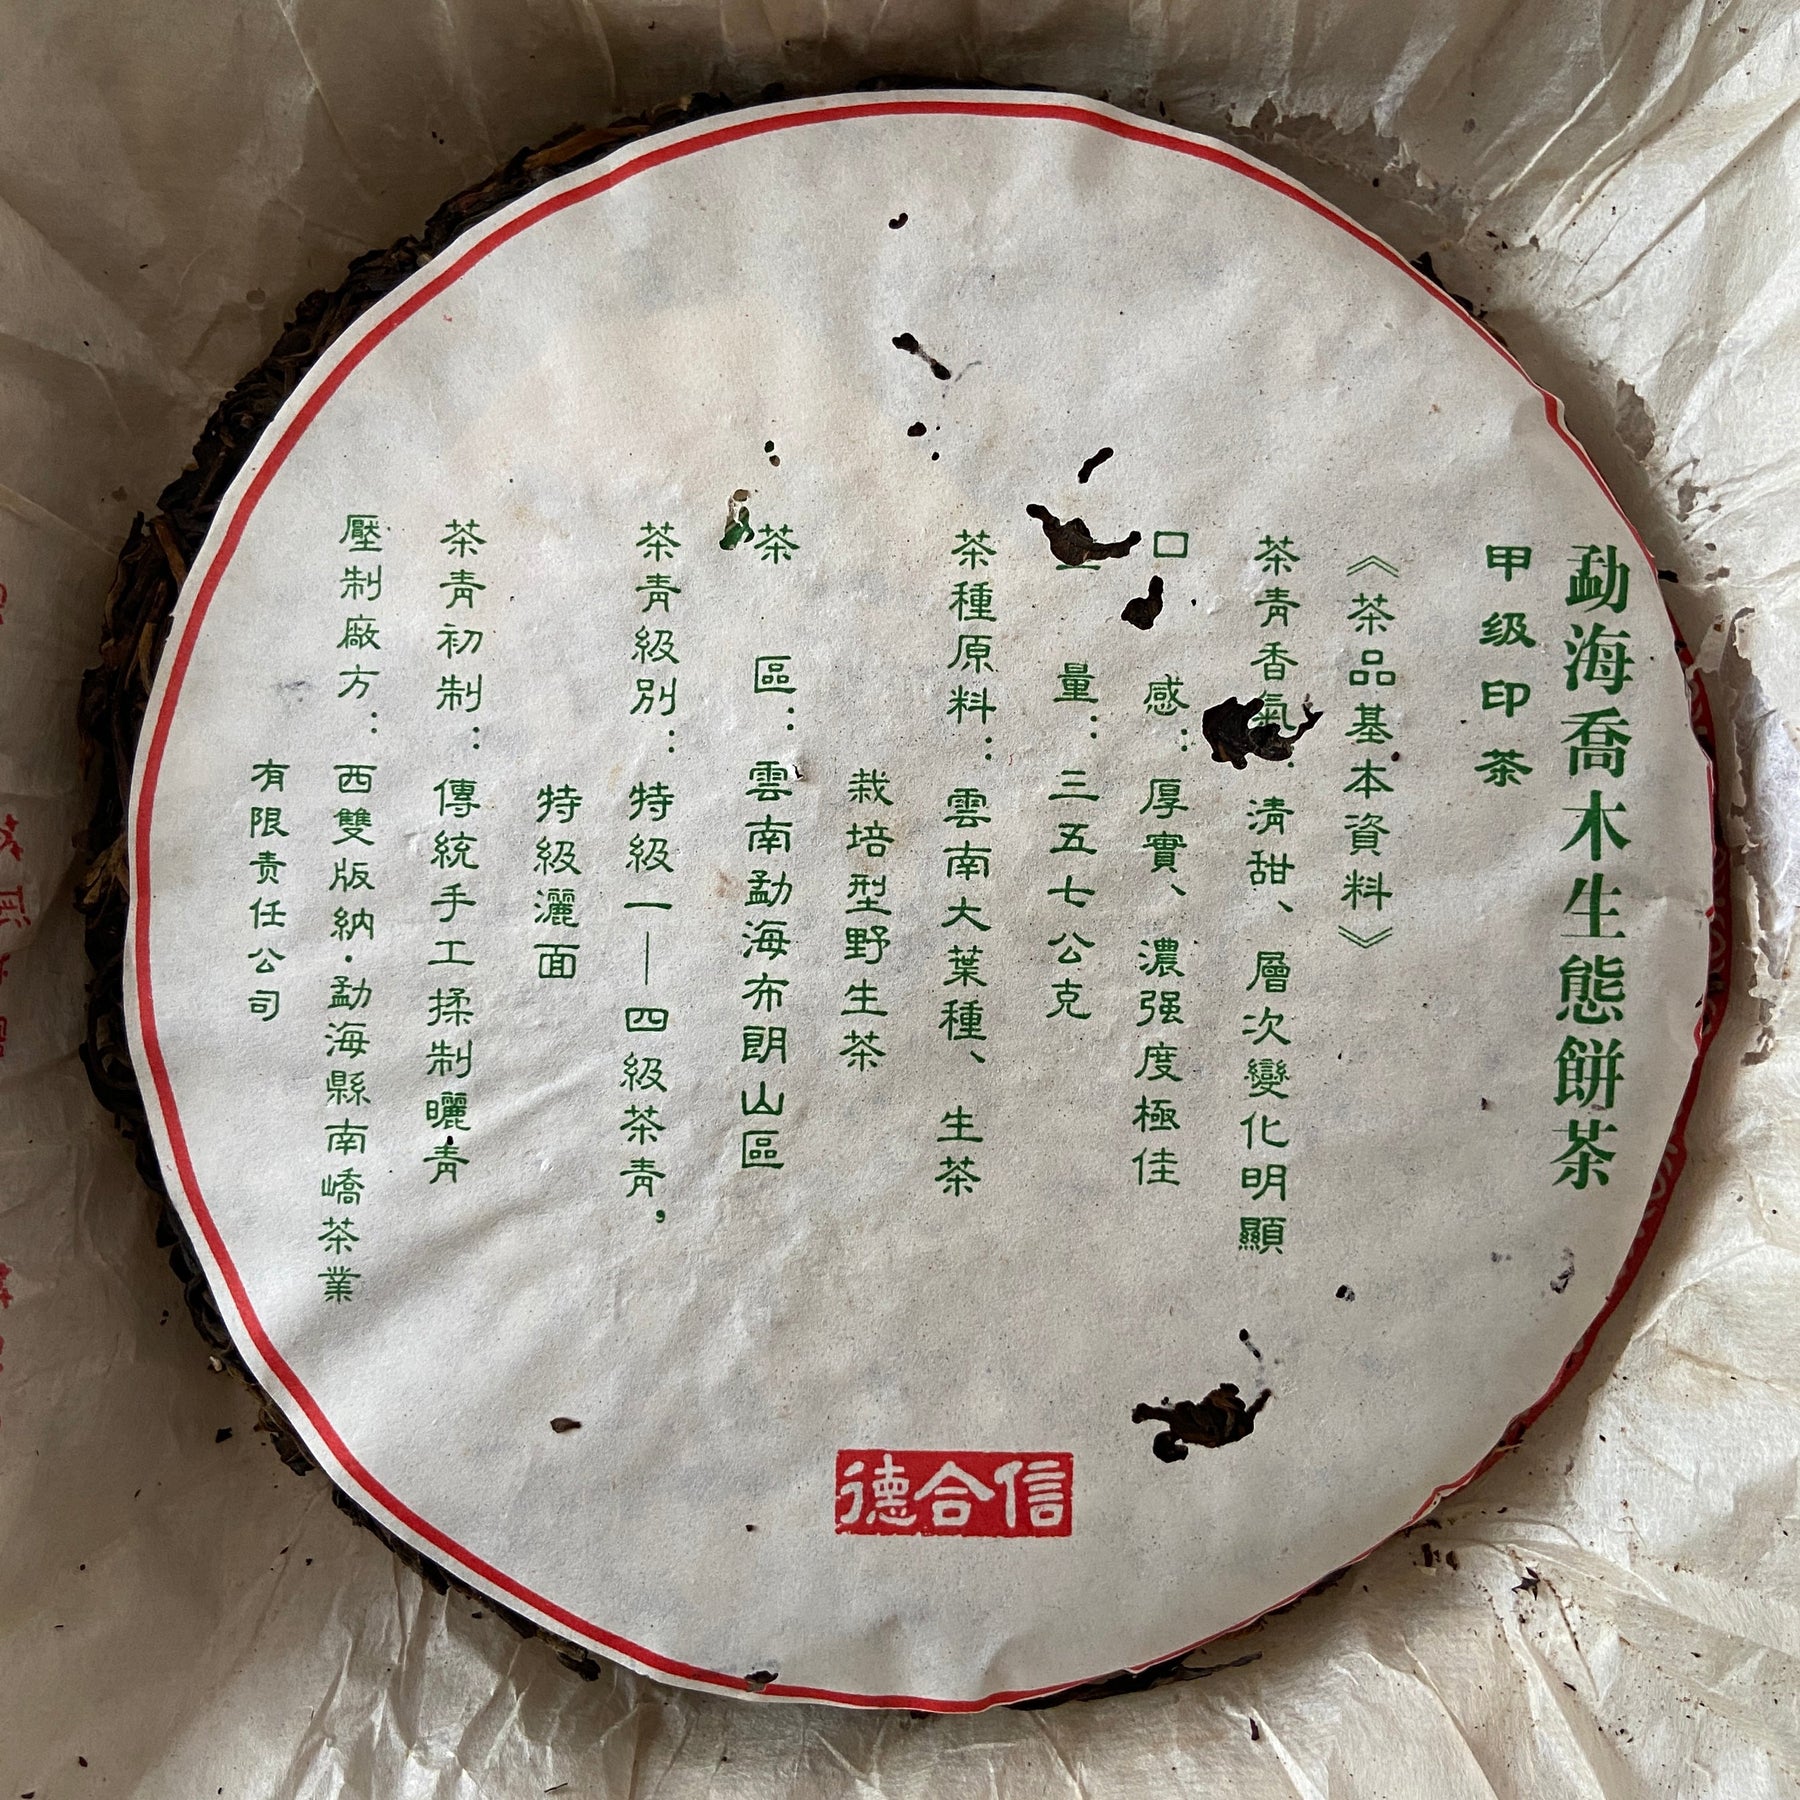 勐海喬木生態餅茶
甲级印茶
《茶品基本資料》
茶青香氣：清甜、層次變化明顯
口感：厚實、濃强度極佳
量：三五七公克
茶種原料：雲南大葉種、生茶
栽培型野生茶
茶區：雲南勐海布朗山區
茶青級別：特級一—四級茶青，
特級灑面
茶青初制：傳統手工揉制曬青
壓制廠方：西雙版納·勐海縣南嶠茶業
有限责任公司
德合信